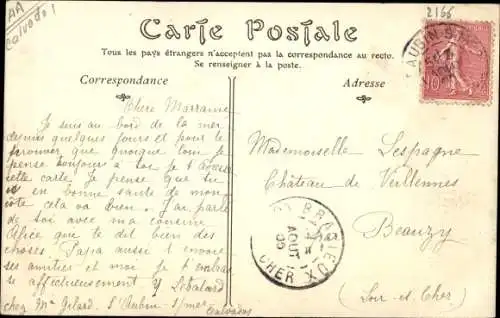 AA
Calvados !
2166
Carte Postale
Tous les pays étrangers n'acceptent pas la correspondance au recto.
Se renseigner à la poste.
Correspondance
Adresse
Chere Marraine
Je suis au bord de la mer
depuis quelques jours et pour te
prouver que quoique loin je
pense toujours à toi je t'
cette carte Je pense que tu
es en bonne santé de mon
côté cela va bien. J'ai parlé
de toi avec ma cousine
qui te dit bien des
choses. Papa aussi t'envoie
ses amitiés et moi je t'embrasse
affectueusement Y
chez Me Gilard. St Aubin s/mer
Calvados
Mademoiselle Lespagne
Château de
Beauzy
(Loir et Cher)
AUBIN-S
10
AOUT
CHER